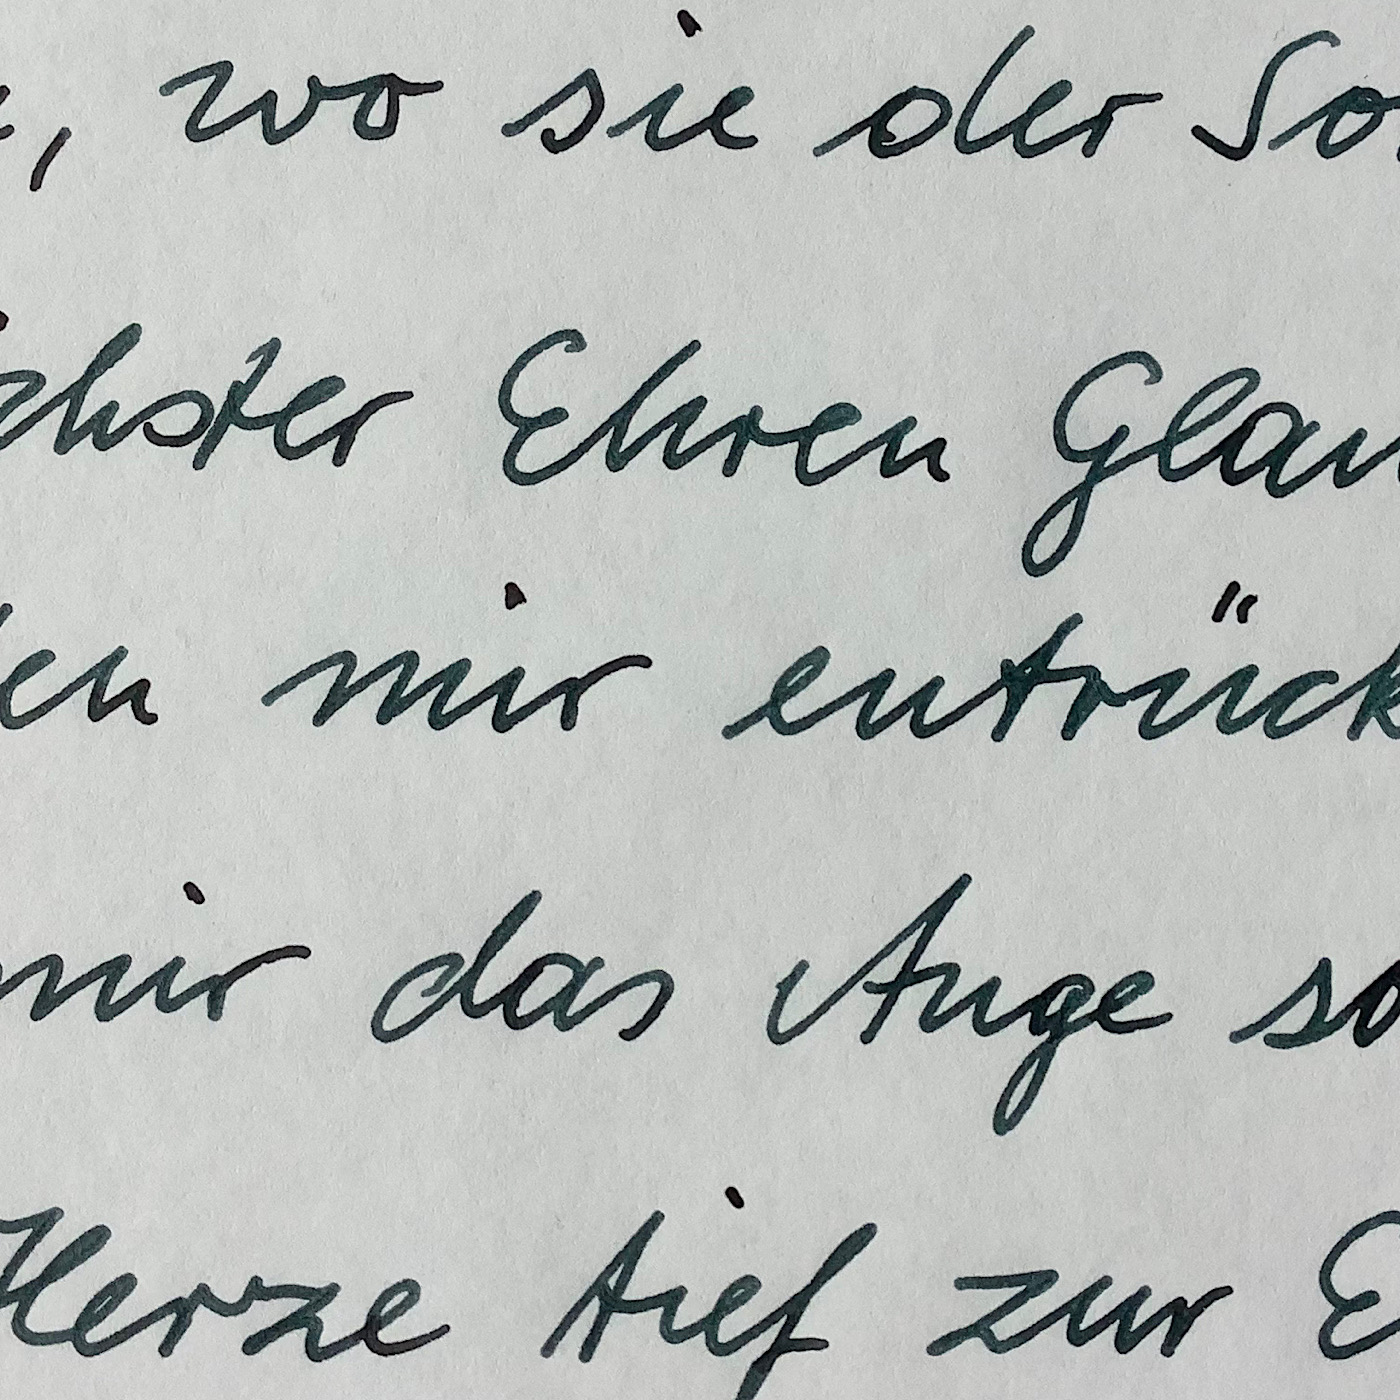 , wo sie der So
chster Ehren Glan
en mir entrück
mir das Auge so
Herze tief zur E